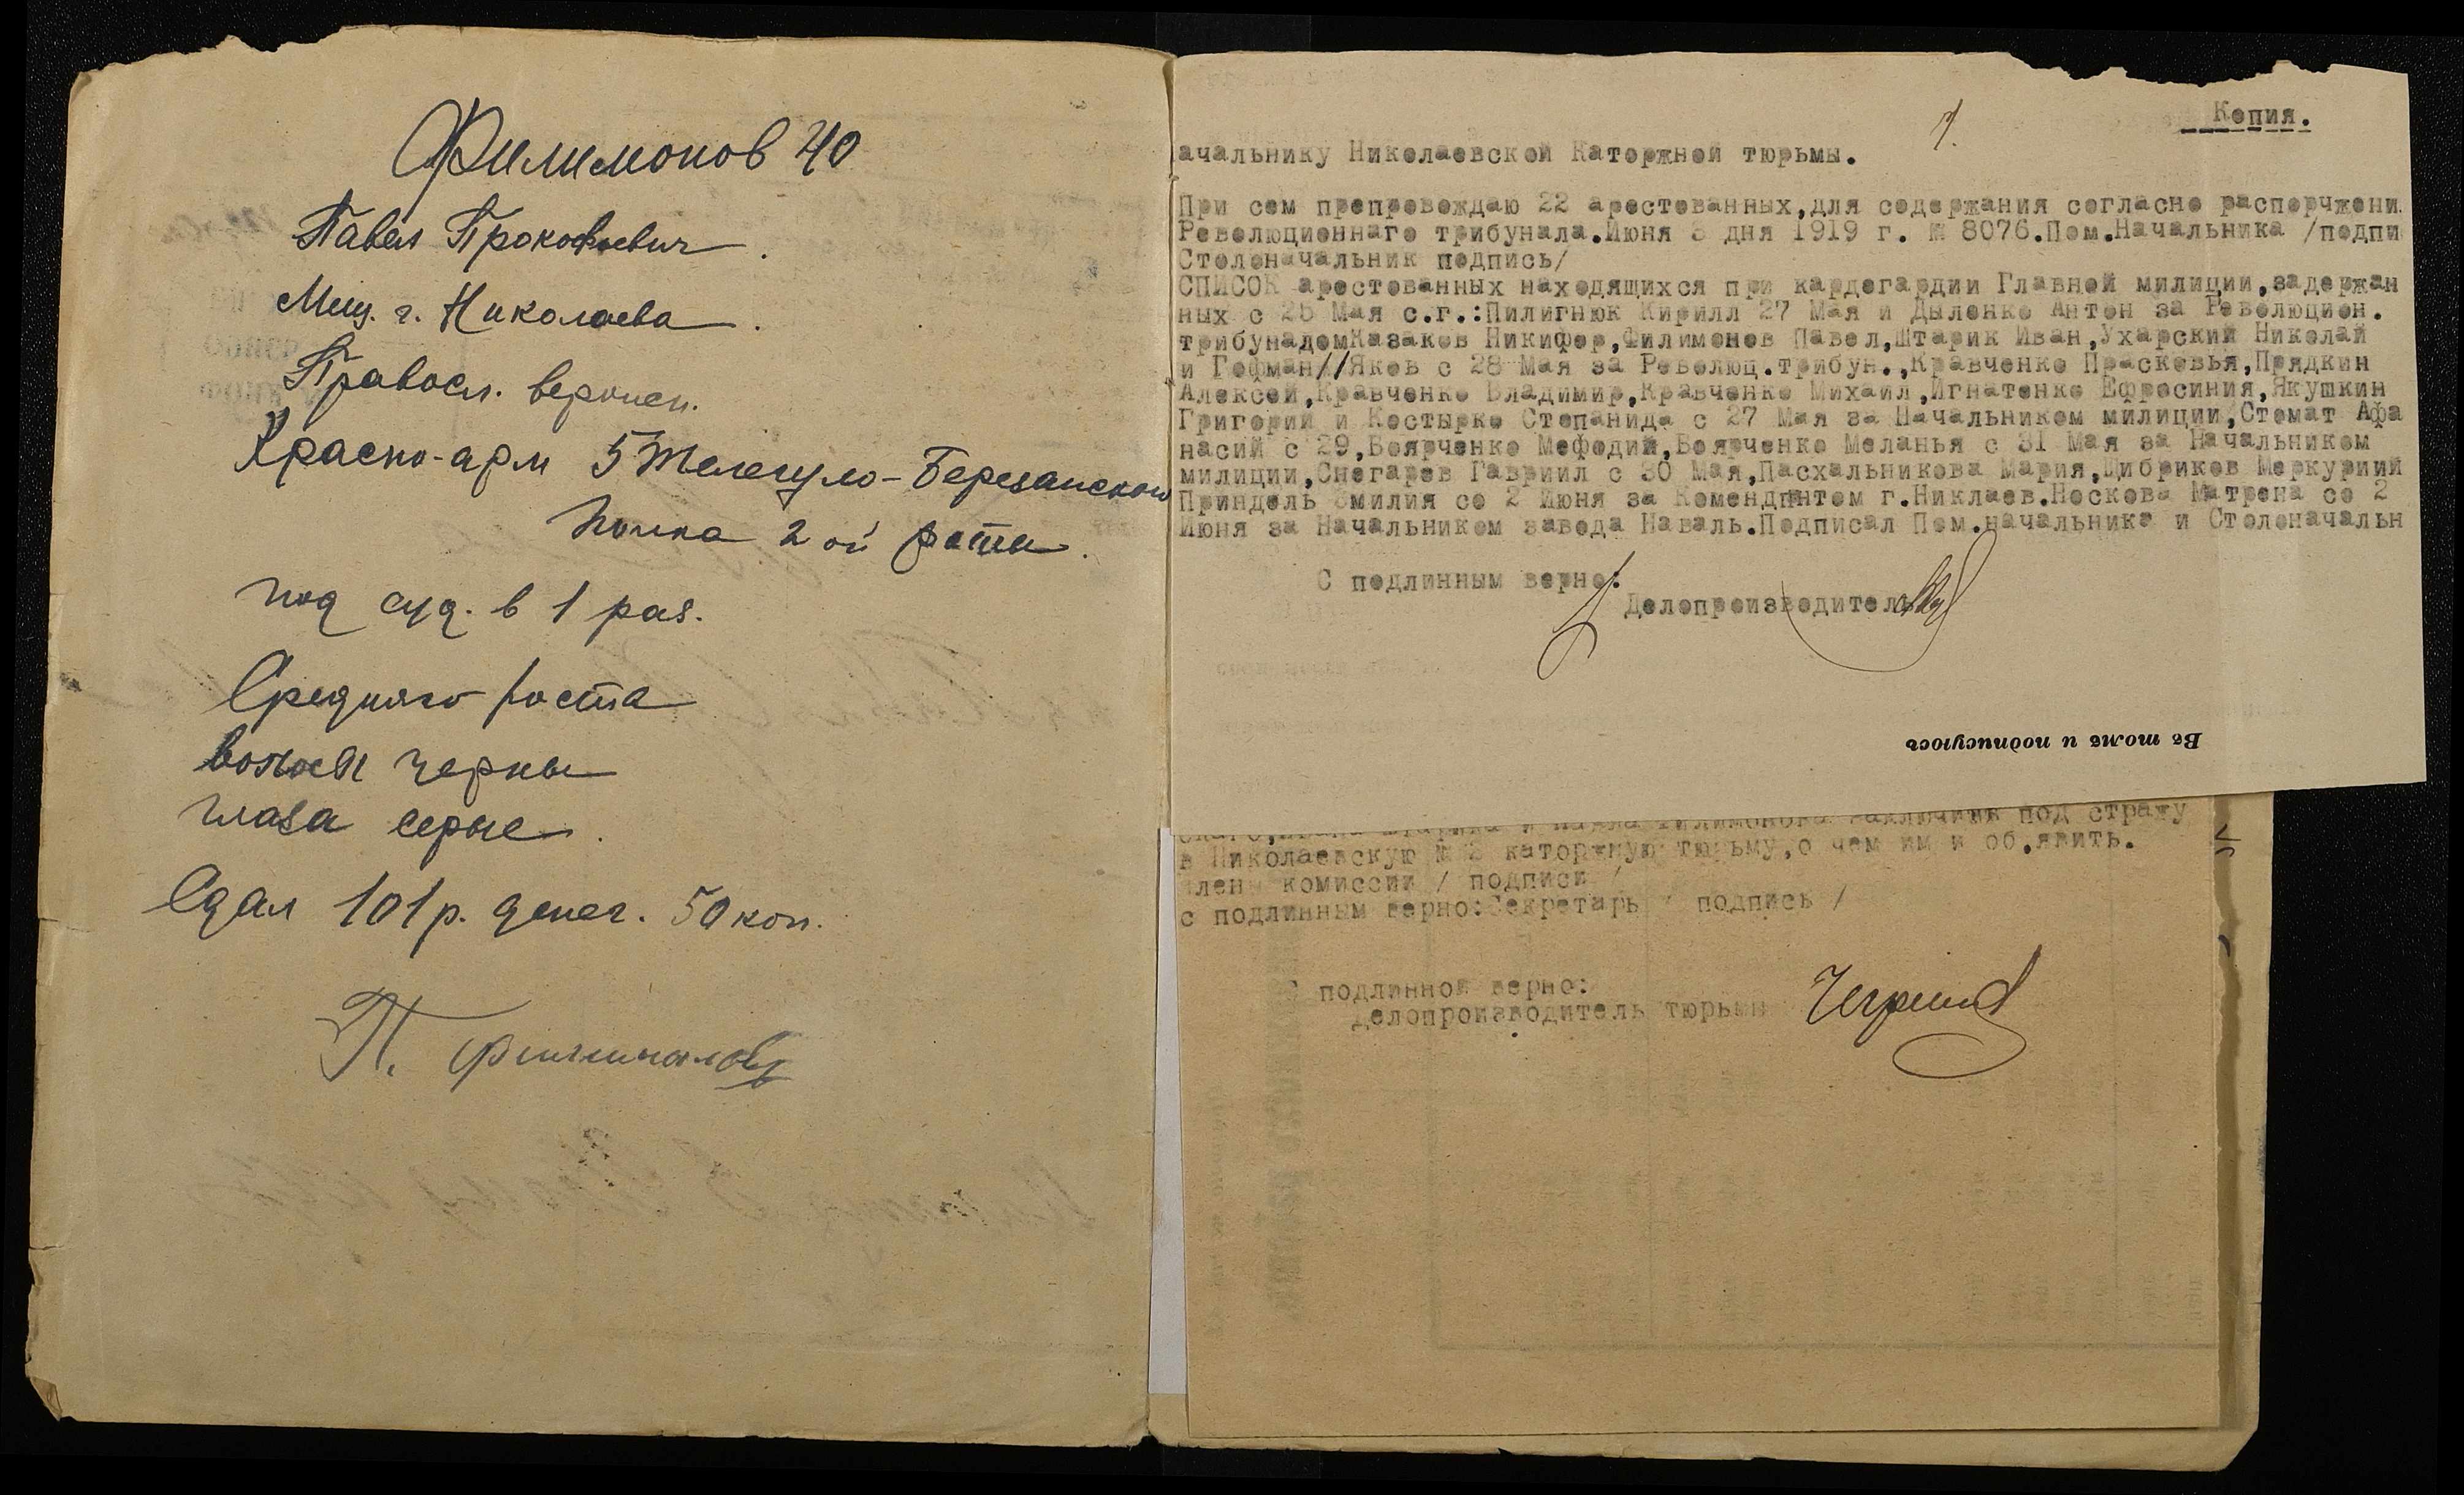 Филимонов 40
Павел Прокофьевич.
Мещ. г. Николаева.
Правосл. вероисп.
Красно-арм 5 Телегуло-Березанского
полка 2 ой роты.
под суд. в 1 раз.
Средняго роста
волосы черны
глаза серые.
Сдал 101 р. денег. 50 коп.
П. Филимонов
Копия.
ачальнику Николаевской Каторжной тюрьмы.
При сем препровождаю 22 арестованных,для содержания согласно распорчжени
Революционнаго трибунала.Июня 3 дня 1919 г. № 8076.Пом.Начальника /подпи
Столоначальник подпись/
СПИСОК арестованных находящихся при кардегардии Главной милиции,задержан
ных с 25 Мая с.г.:Пилигнюк Кирилл 27 Мая и Дыленко Антон за Революцион.
трибунадомКазаков Никифор,Филимонов Павел,Штарик Иван,Ухарский Николай
и Гофман//Яков с 28 Мая за Революц.трибун.,Кравченко Прасковья,Прядкин
Алексей,Кравченко Владимир,Кравченко Михаил,Игнатенко Ефросиния,Якушкин
Григорий и Костырко Степанида с 27 Мая за Начальником милиции,Стомат Афа
насий с 29,Боярченко Мефодий,Боярченко Меланья с 31 Мая за Начальником
милиции,Снегарев Гавриил с 30 Мая,Пасхальникова Мария,Цибриков Меркуриий
Приндель Эмилия со 2 Июня за Комендантом г.Никлаев.Носкова Матрена со 2
Июня за Начальником завода Наваль.Подписал Пом.начальника и Столоначальн
С подлинным верно:
Делопроизводитель
Въ томъ и подписуюсь
ского,Ивана Штарика и Павла Филимонова заключить под стражу
в Николаевскую № 2 каторжную тюрьму,о чем им и об,явить.
члены комиссии / подписи /
с подлинным верно:Секретарь / подпись /
С подлинной верно:
Делопроизводитель тюрьмы